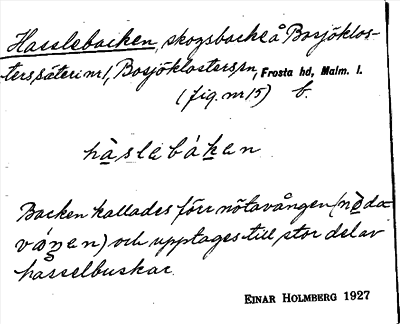 Hasslebacken, skogsbacke å Bosjöklos-
ters säteri nr 1, Bosjöklosters sn, Frosta hd, Malm. l.
(fig. nr 15) b.
hàslebáken
Backen kallades förr nötavången (nøda
váŋen) och upptages till stor del av
hasselbuskar.
EINAR HOLMBERG 1927